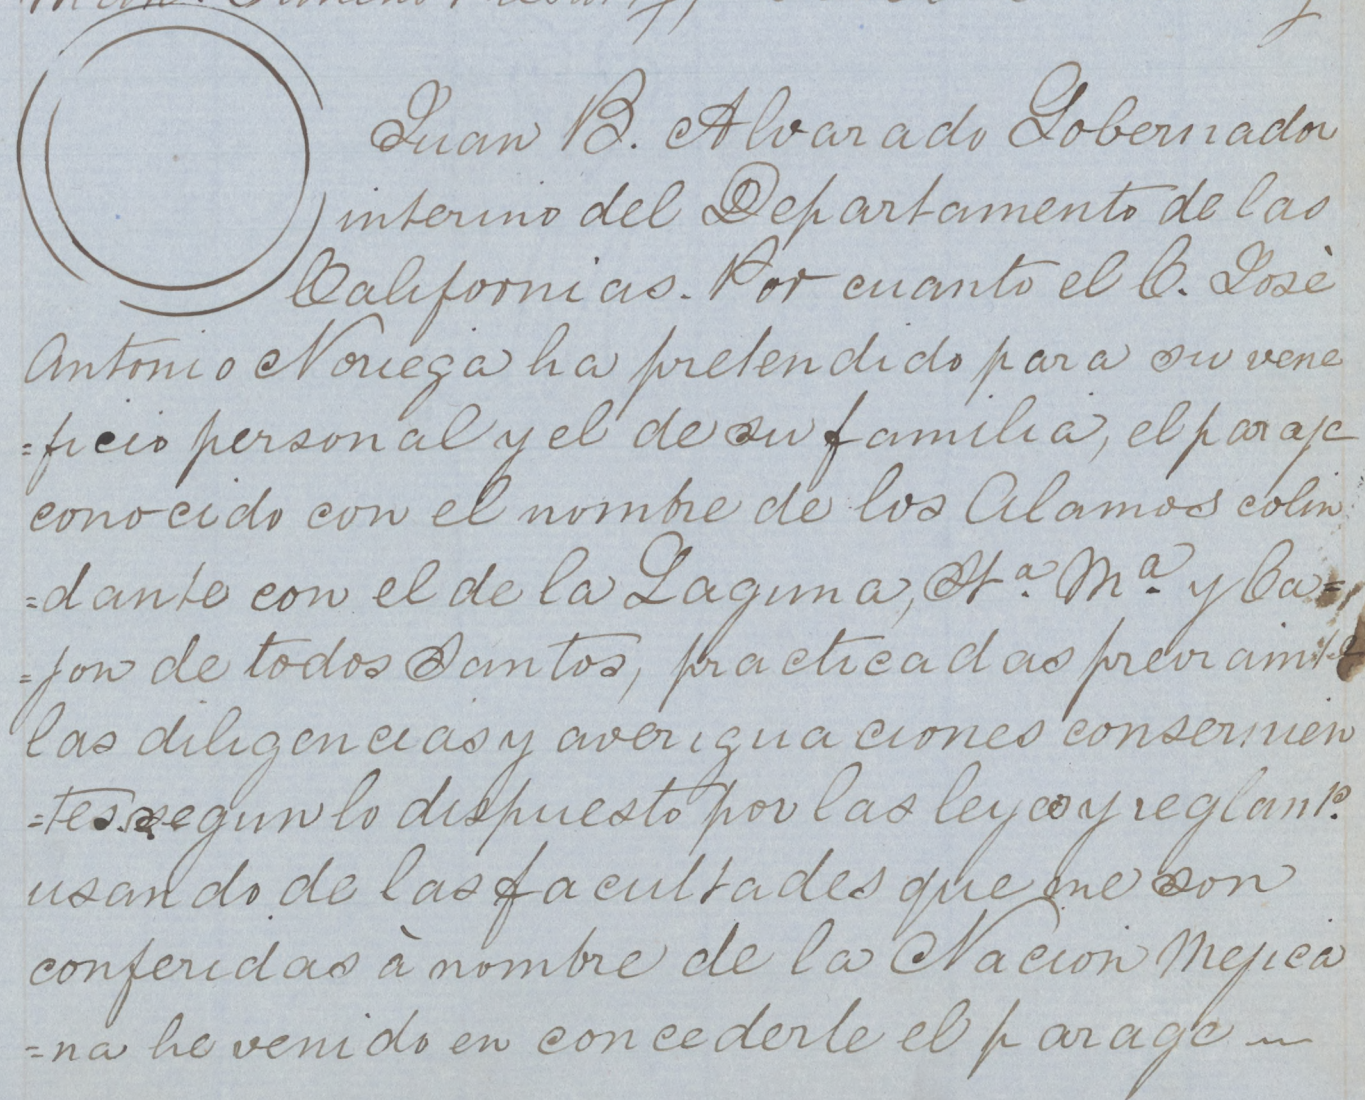 Juan B. Alvarado Gobernador
interino del Departamento de las
Californias. Por cuanto el C. Josè
Antonio Noriega ha pretendido para su vene
=ficio personal y el de su familia, el paraje
conocido con el nombre de los Alamos colin
=dante con el de la Laguna, Sta. Ma. y Ca=
=jon de todos Santos, practicadas previamte
las diligencias y averiguaciones consernien
=tes segun lo dispuesto por las leyes y reglamto.
usando de las facultades que me son
conferidas à nombre de la Nacion Mejica
=na he venido en concederle el parage